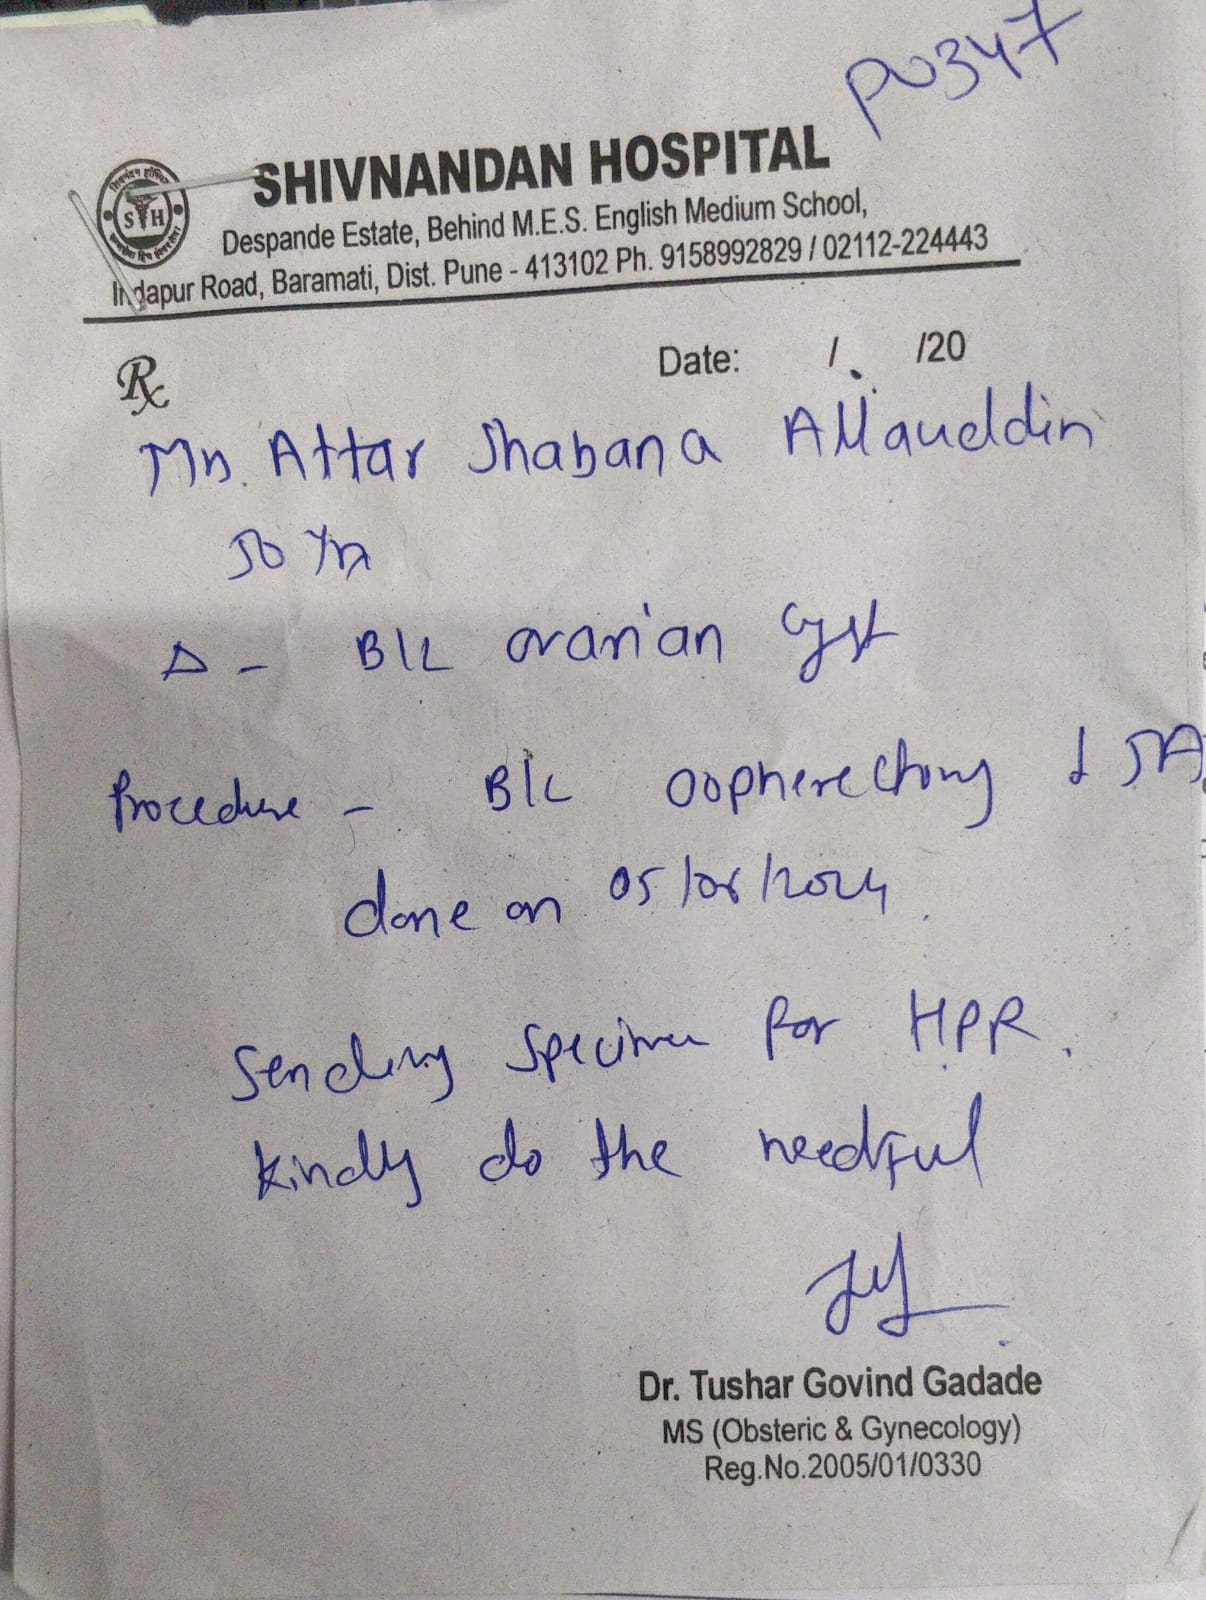 PU347
SHIVNANDAN HOSPITAL
S H
Despande Estate, Behind M.E.S. English Medium School,
Indapur Road, Baramati, Dist. Pune - 413102 Ph. 9158992829 / 02112-224443
Rx
Date: / /20
Mrs. Attar Shabana Allauddin
50 Yrs
Δ - B/L ovarian Cyst
Procedure - B/L oopherectomy & SA
done on 05/08/2024.
Sending specimen for HPR.
Kindly do the needful
Dr. Tushar Govind Gadade
MS (Obsteric & Gynecology)
Reg.No.2005/01/0330